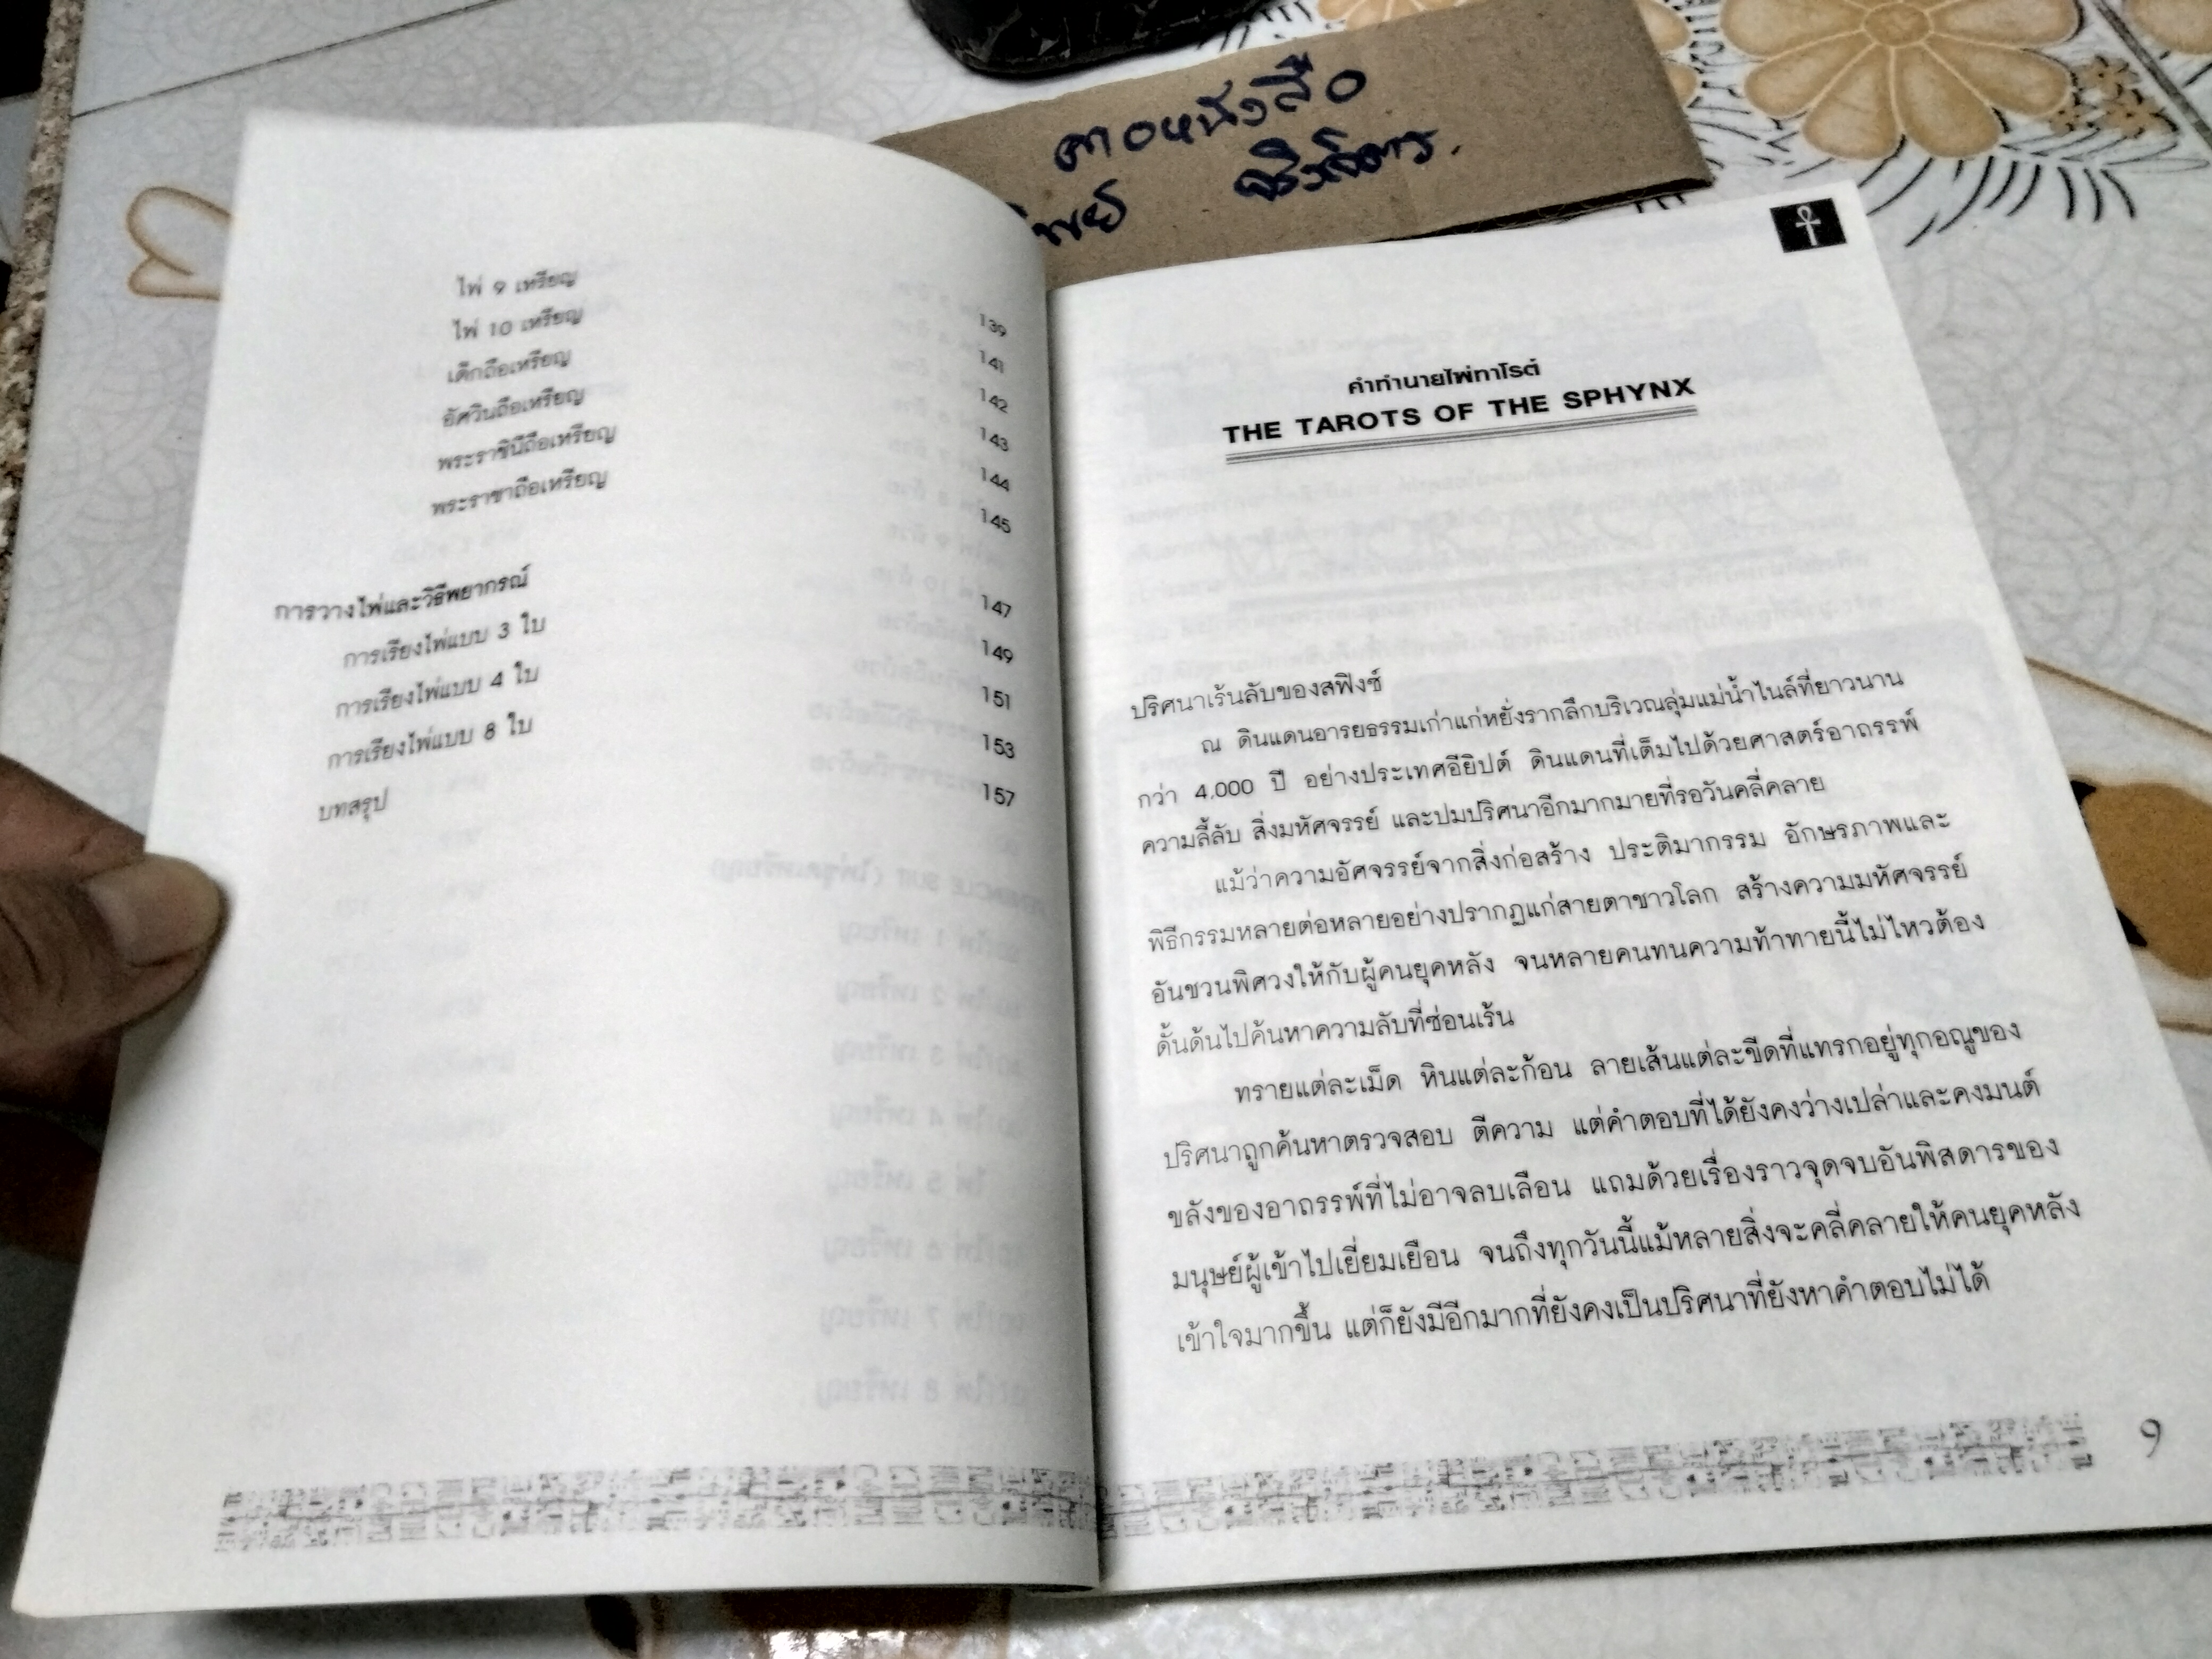 ตาอหนังสือ
ทิพย์
ไพ่ 9 เหรียญ 139
ไพ่ 10 เหรียญ 141
เด็กถือเหรียญ 142
อัศวินถือเหรียญ 143
พระราชินีถือเหรียญ 144
พระราชาถือเหรียญ 145
การวางไพ่และวิธีพยากรณ์ 147
การเรียงไพ่แบบ 3 ใบ 149
การเรียงไพ่แบบ 4 ใบ 151
การเรียงไพ่แบบ 8 ใบ 153
บทสรุป 157
คำทำนายไพ่ทาโรต์
THE TAROTS OF THE SPHYNX
ปริศนาเร้นลับของสฟิงซ์
ณ ดินแดนอารยธรรมเก่าแก่หยั่งรากลึกบริเวณลุ่มแม่น้ำไนล์ที่ยาวนาน
กว่า 4,000 ปี อย่างประเทศอียิปต์ ดินแดนที่เต็มไปด้วยศาสตร์อาถรรพ์
ความลี้ลับ สิ่งมหัศจรรย์ และปมปริศนาอีกมากมายที่รอวันคลี่คลาย
แม้ว่าความอัศจรรย์จากสิ่งก่อสร้าง ประติมากรรม อักษรภาพและ
พิธีกรรมหลายต่อหลายอย่างปรากฏแก่สายตาชาวโลก สร้างความมหัศจรรย์
อันชวนพิศวงให้กับผู้คนยุคหลัง จนหลายคนทนความท้าทายนี้ไม่ไหวต้อง
ดั้นด้นไปค้นหาความลับที่ซ่อนเร้น
ทรายแต่ละเม็ด หินแต่ละก้อน ลายเส้นแต่ละขีดที่แทรกอยู่ทุกอณูของ
ปริศนาถูกค้นหาตรวจสอบ ตีความ แต่คำตอบที่ได้ยังคงว่างเปล่าและคงมนต์
ขลังของอาถรรพ์ที่ไม่อาจลบเลือน แถมด้วยเรื่องราวจุดจบอันพิสดารของ
มนุษย์ผู้เข้าไปเยี่ยมเยือน จนถึงทุกวันนี้แม้หลายสิ่งจะคลี่คลายให้คนยุคหลัง
เข้าใจมากขึ้น แต่ก็ยังมีอีกมากที่ยังคงเป็นปริศนาที่ยังหาคำตอบไม่ได้
9